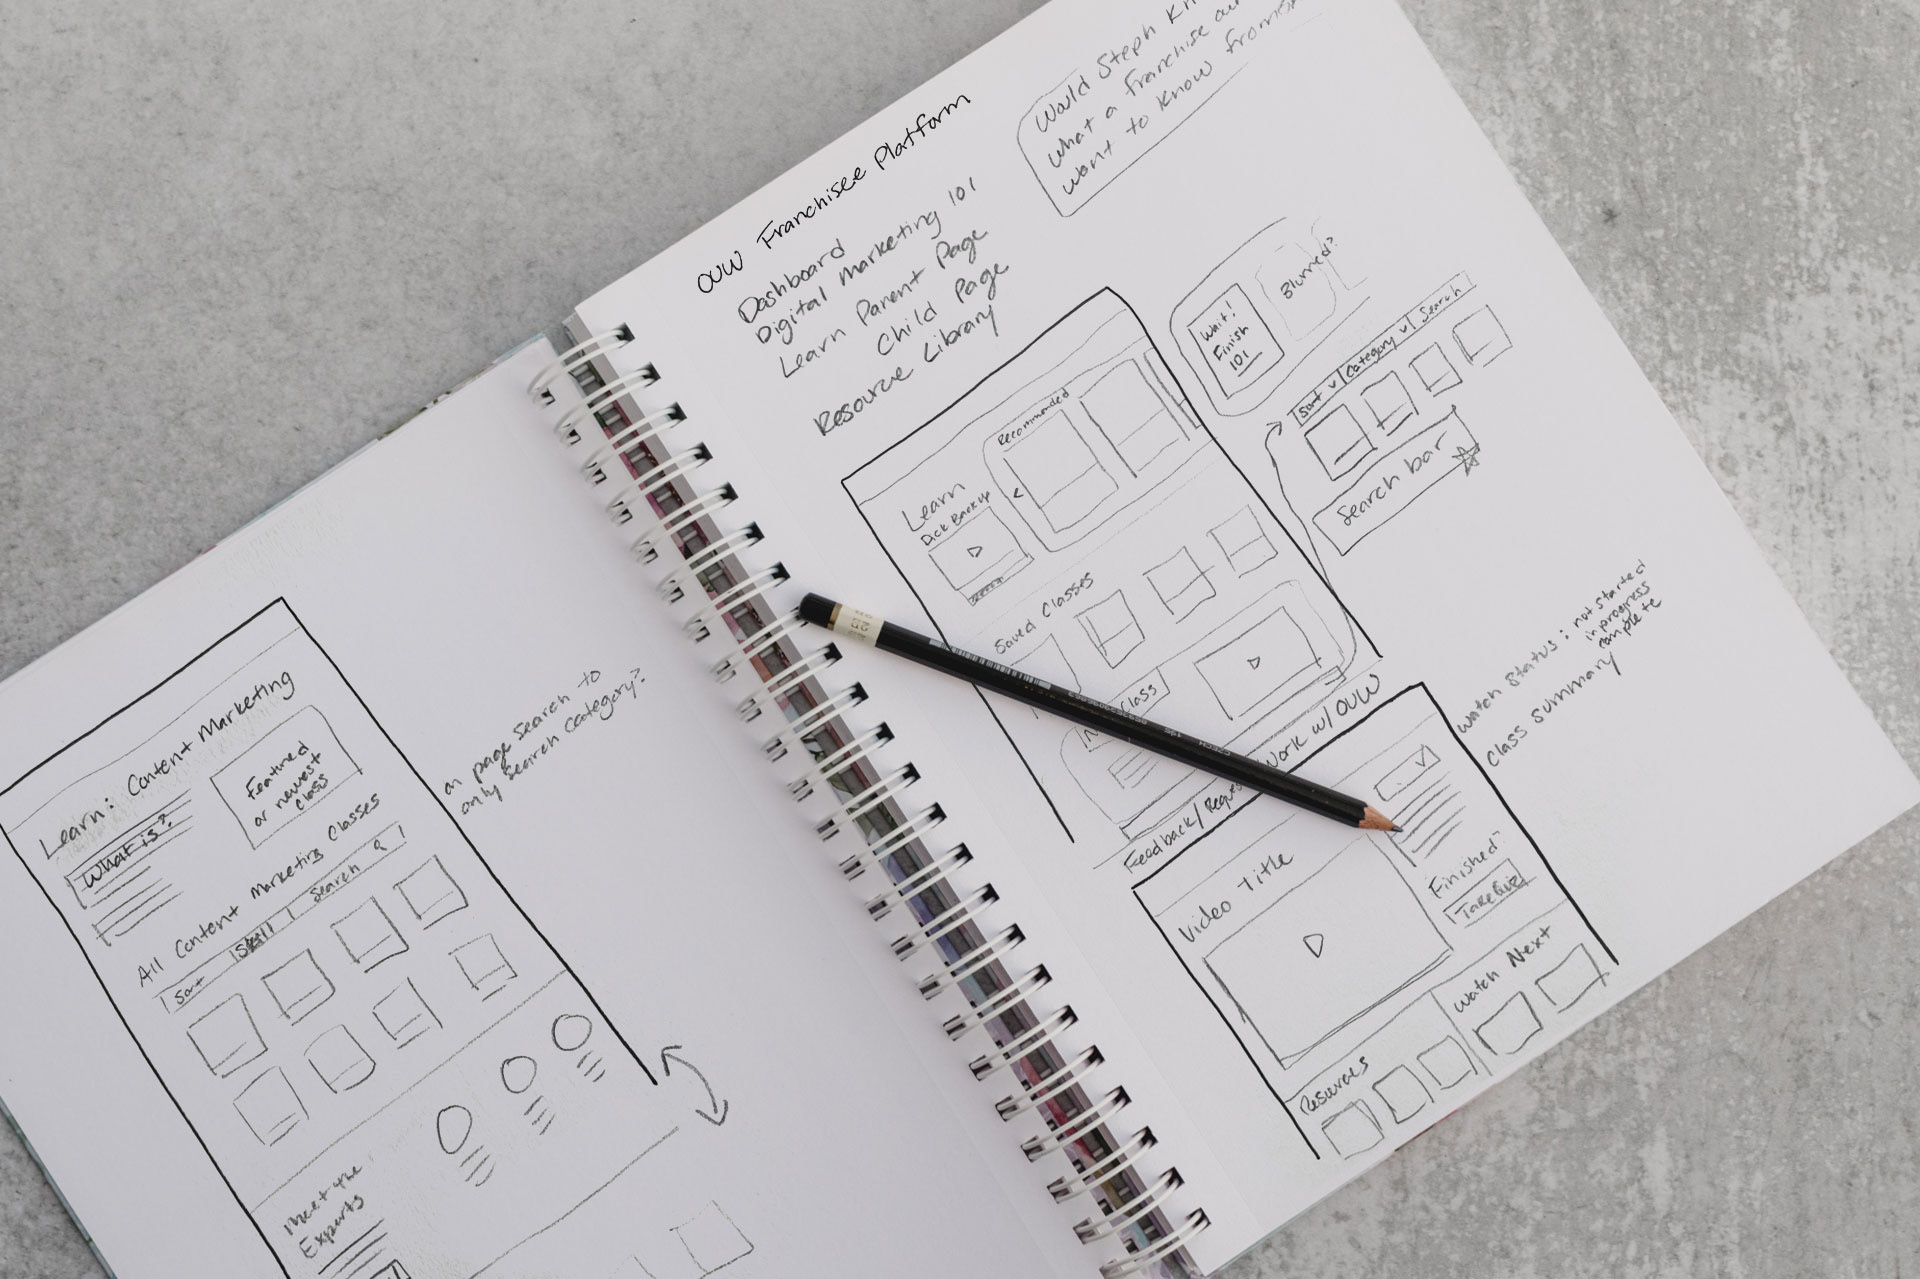 Learn: Content Marketing
What is?
Featured
or newest
class
All Content Marketing Classes
Sort
Skill
Search
Meet the
Experts
on page search to
only search category?
OUW Franchisee Platform
Dashboard
Digital Marketing 101
Learn Parent Page
Child Page
Resource Library
Would Steph
what a franchise
want to know from
Wait!
Finish
101
Blurred?
Sort v | Category v | Search
Search bar
Learn
Recommended
Pick Back Up
Saved Classes
Class
Feedback/
Work w/ OUW
Watch Status: not started
in progress
complete
Class summary
Video Title
Finished
Take Quiz
Watch Next
Resources